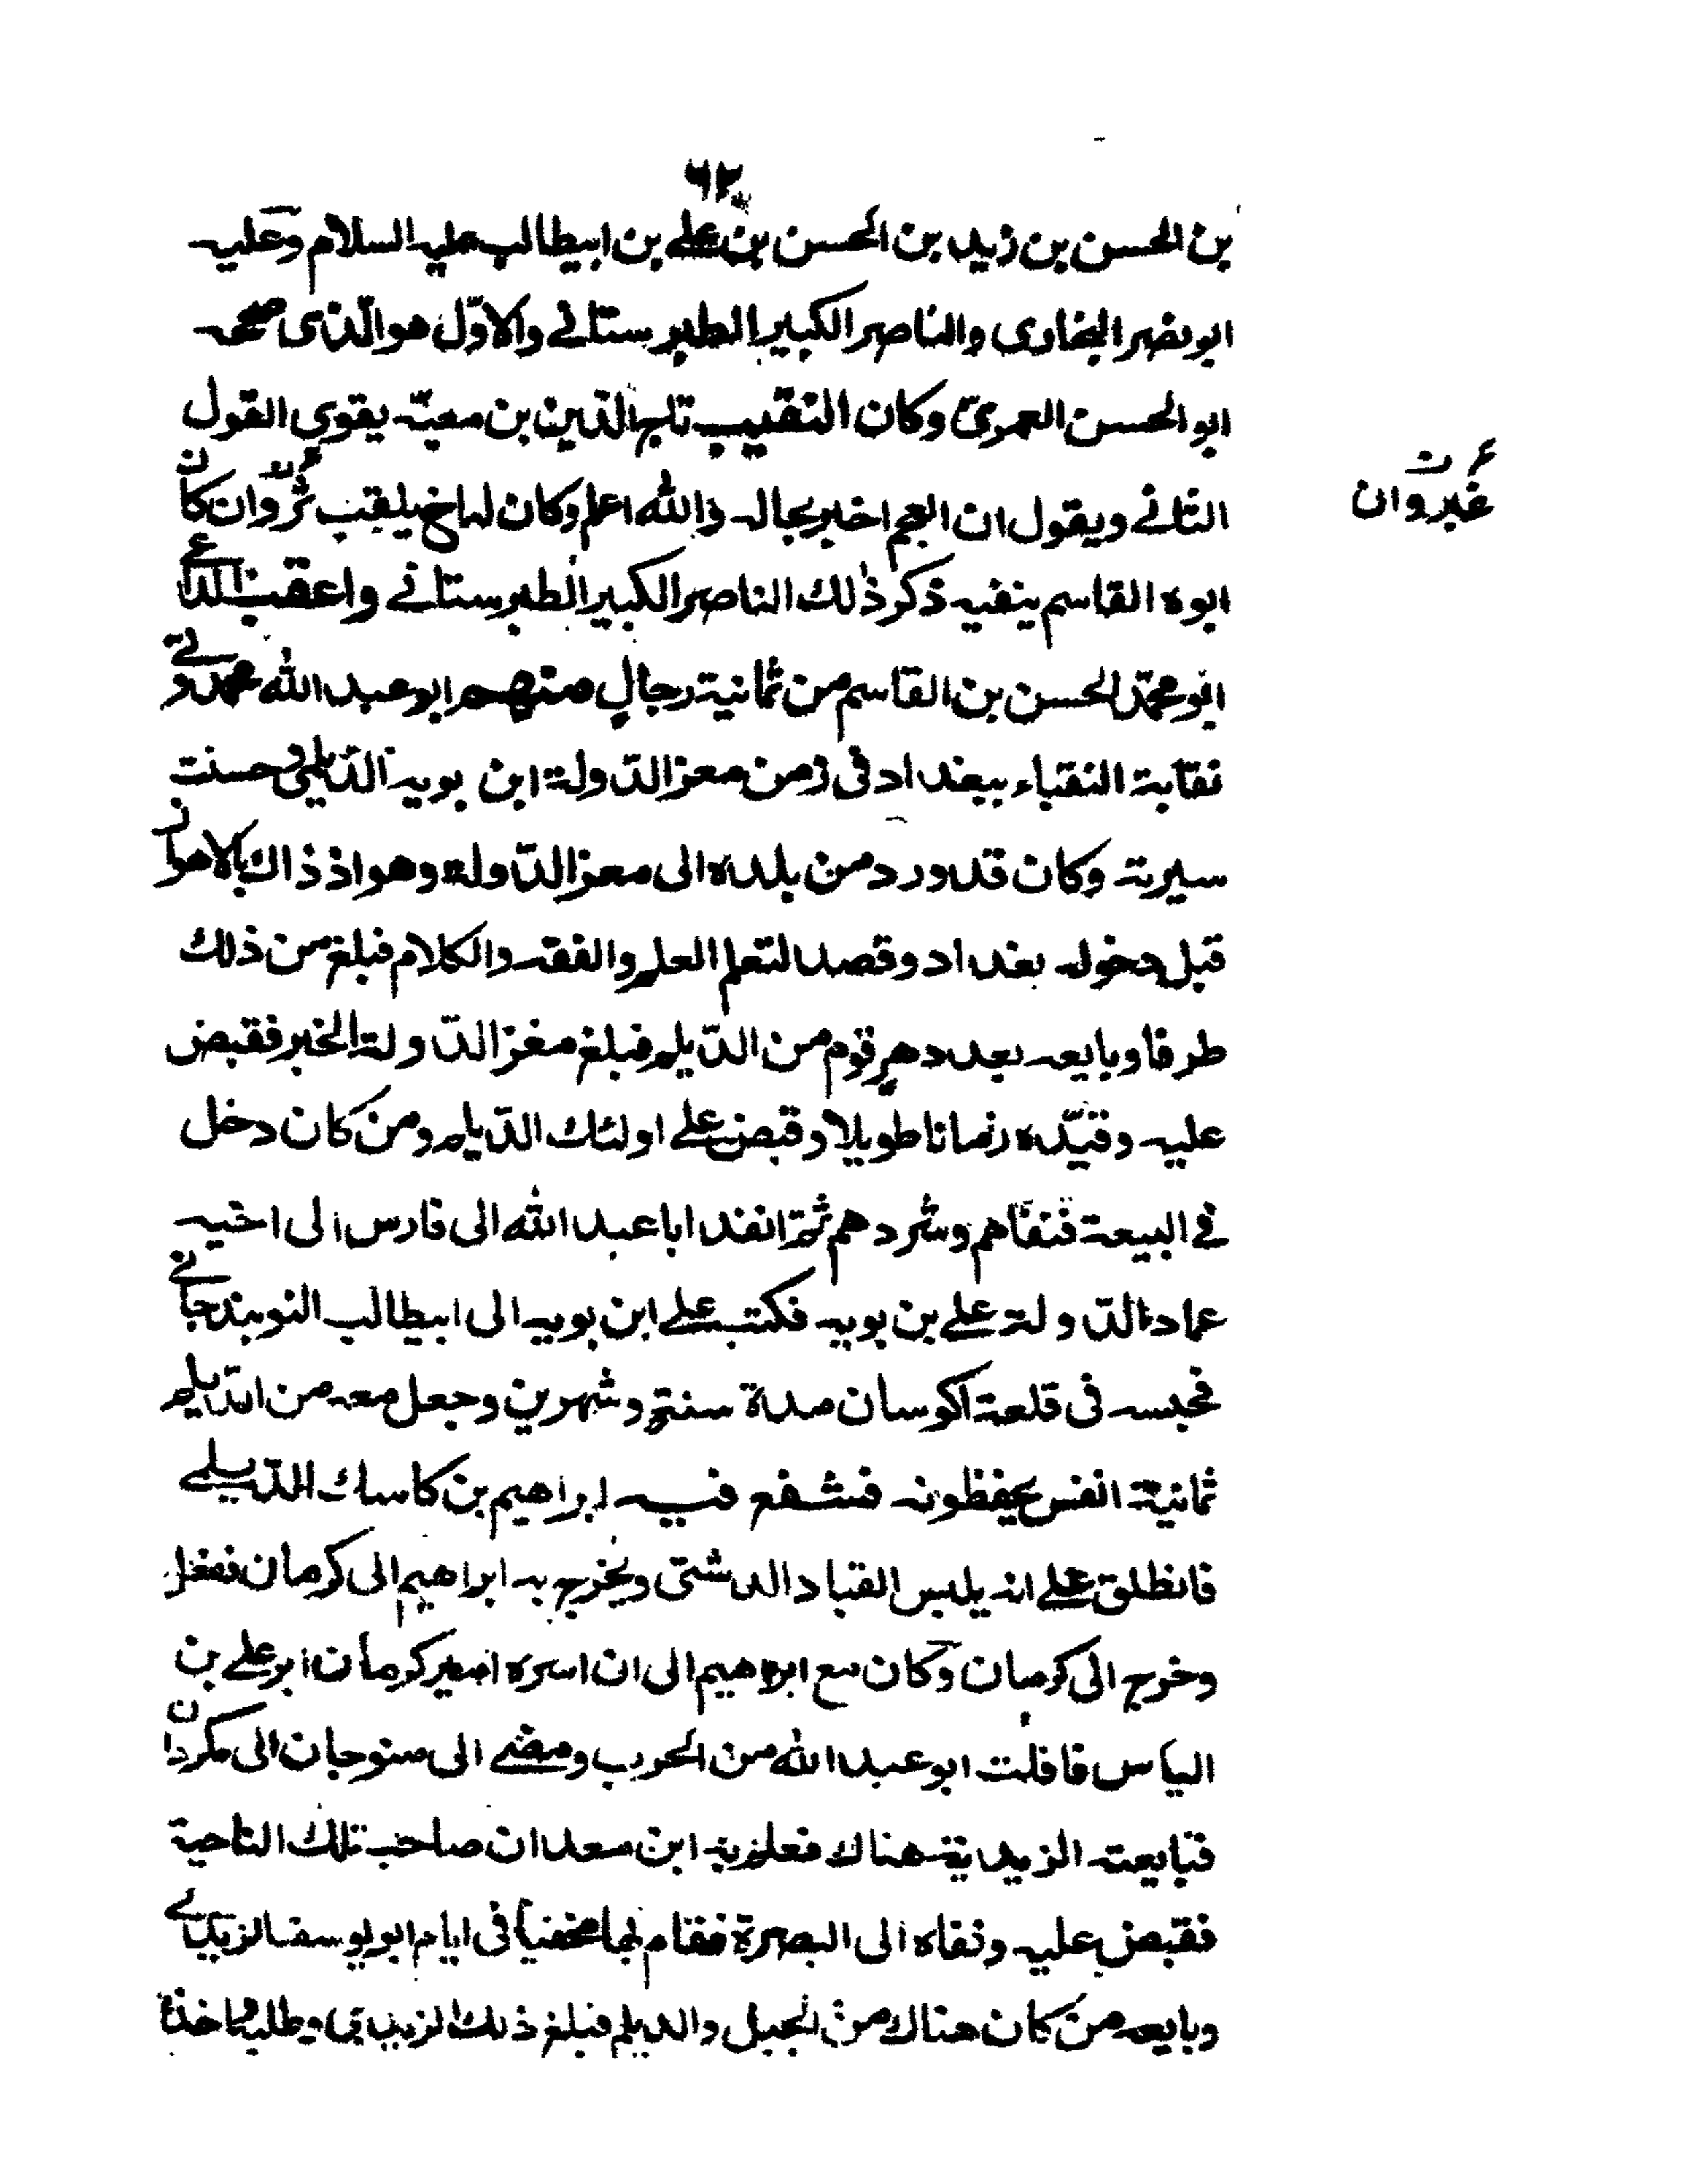 ٦٢
بن الحسن بن زيد بن الحسن بن علي بن ابيطالب عليه السلام وعليه
ابو نصر البخاوى والناصر الكبير الطبرستاني والاوّل هو الّذى صححه
ابو الحسن العمرىّ وكان النقيب تاج الدّين بن معيّه يقوى القول
الثاني ويقول ان العجم اخبر بحاله والله اعلم وكان له اخ يلقب ثروان كان
غبروان
ابوه القاسم ينفيه ذكر ذلك الناصر الكبير الطبرستاني واعقب الداعي
ابو محمّد الحسن بن القاسم من ثمانية رجال منهم ابو عبد الله محمد ولى
نقابة النقباء ببغداد فى زمن معز الدّولة ابن بويه الدّيلمى وحسنت
سيرته وكان قد ورد من بلده الى معز الدّولة وهو اذ ذاك بالاهواز
قبل دخوله بغداد وقصد لتعلم العلم والفقه والكلام فبلغ من ذلك
طرفا وبايعه بعد دهر قوم من الدّيلم فبلغ مغز الدّولة الخبر فقبض
عليه وقيّده زمانا طويلا وقبض على اولئك الدّيلم ومن كان دخل
في البيعة فنفاهم وشردهم ثمّ انفد ابا عبد الله الى فارس الى اخيه
عماد الدّولة علي بن بويه فكتب علي ابن بويه الى ابيطالب النوبندجاني
فحبسه فى قلعة اكوسان مدة سنة وشهرين وجعل معه من الدّيلم
ثمانية انفس يحفظونه فشفع فيه ابراهيم بن كاسك الدّيلمي
فانطلق علي انه يلبس القباد الدشتى ويخرج به ابراهيم الى كرمان ففعل
وخرج الى كرمان وكان مع ابرهيم الى ان اسره امير كرمان ابو علي بن
الياس فافلت ابو عبد الله من الحرب ومضي الى منوجان الى مكردان
فبايعته الزيدية هناك فعلم به ابن معدان صاحب تلك الناحية
فقبض عليه ونفاه الى البصرة فقام بها مخفيا فى ايام ابو يوسف الزيدي
وبايعه من كان هناك من الجبل والديلم فبلغ ذلك الزيدى وطلبه فاخذ